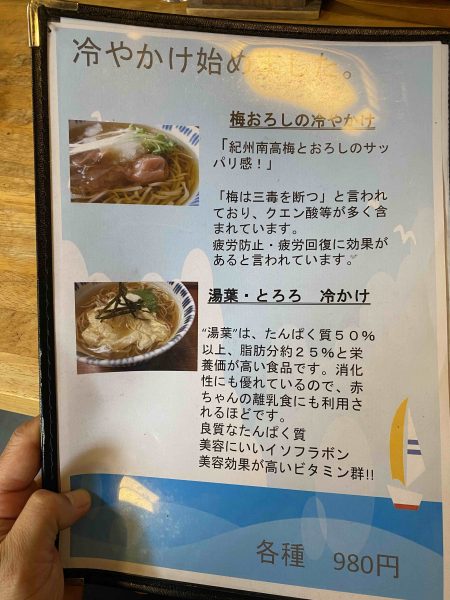 冷やかけ始めました。
梅おろしの冷やかけ
「紀州南高梅とおろしのサッ
パリ感！」
「梅は三毒を断つ」と言われ
ており、クエン酸等が多く含
まれています。
疲労防止・疲労回復に効果が
あると言われています。
湯葉・とろろ　冷かけ
“湯葉”は、たんぱく質５０％
以上、脂肪分約２５％と栄
養価が高い食品です。消化
性にも優れているので、赤
ちゃんの離乳食にも利用さ
れるほどです。
良質なたんぱく質
美容にいいイソフラボン
美容効果が高いビタミン群!!
各種　980円